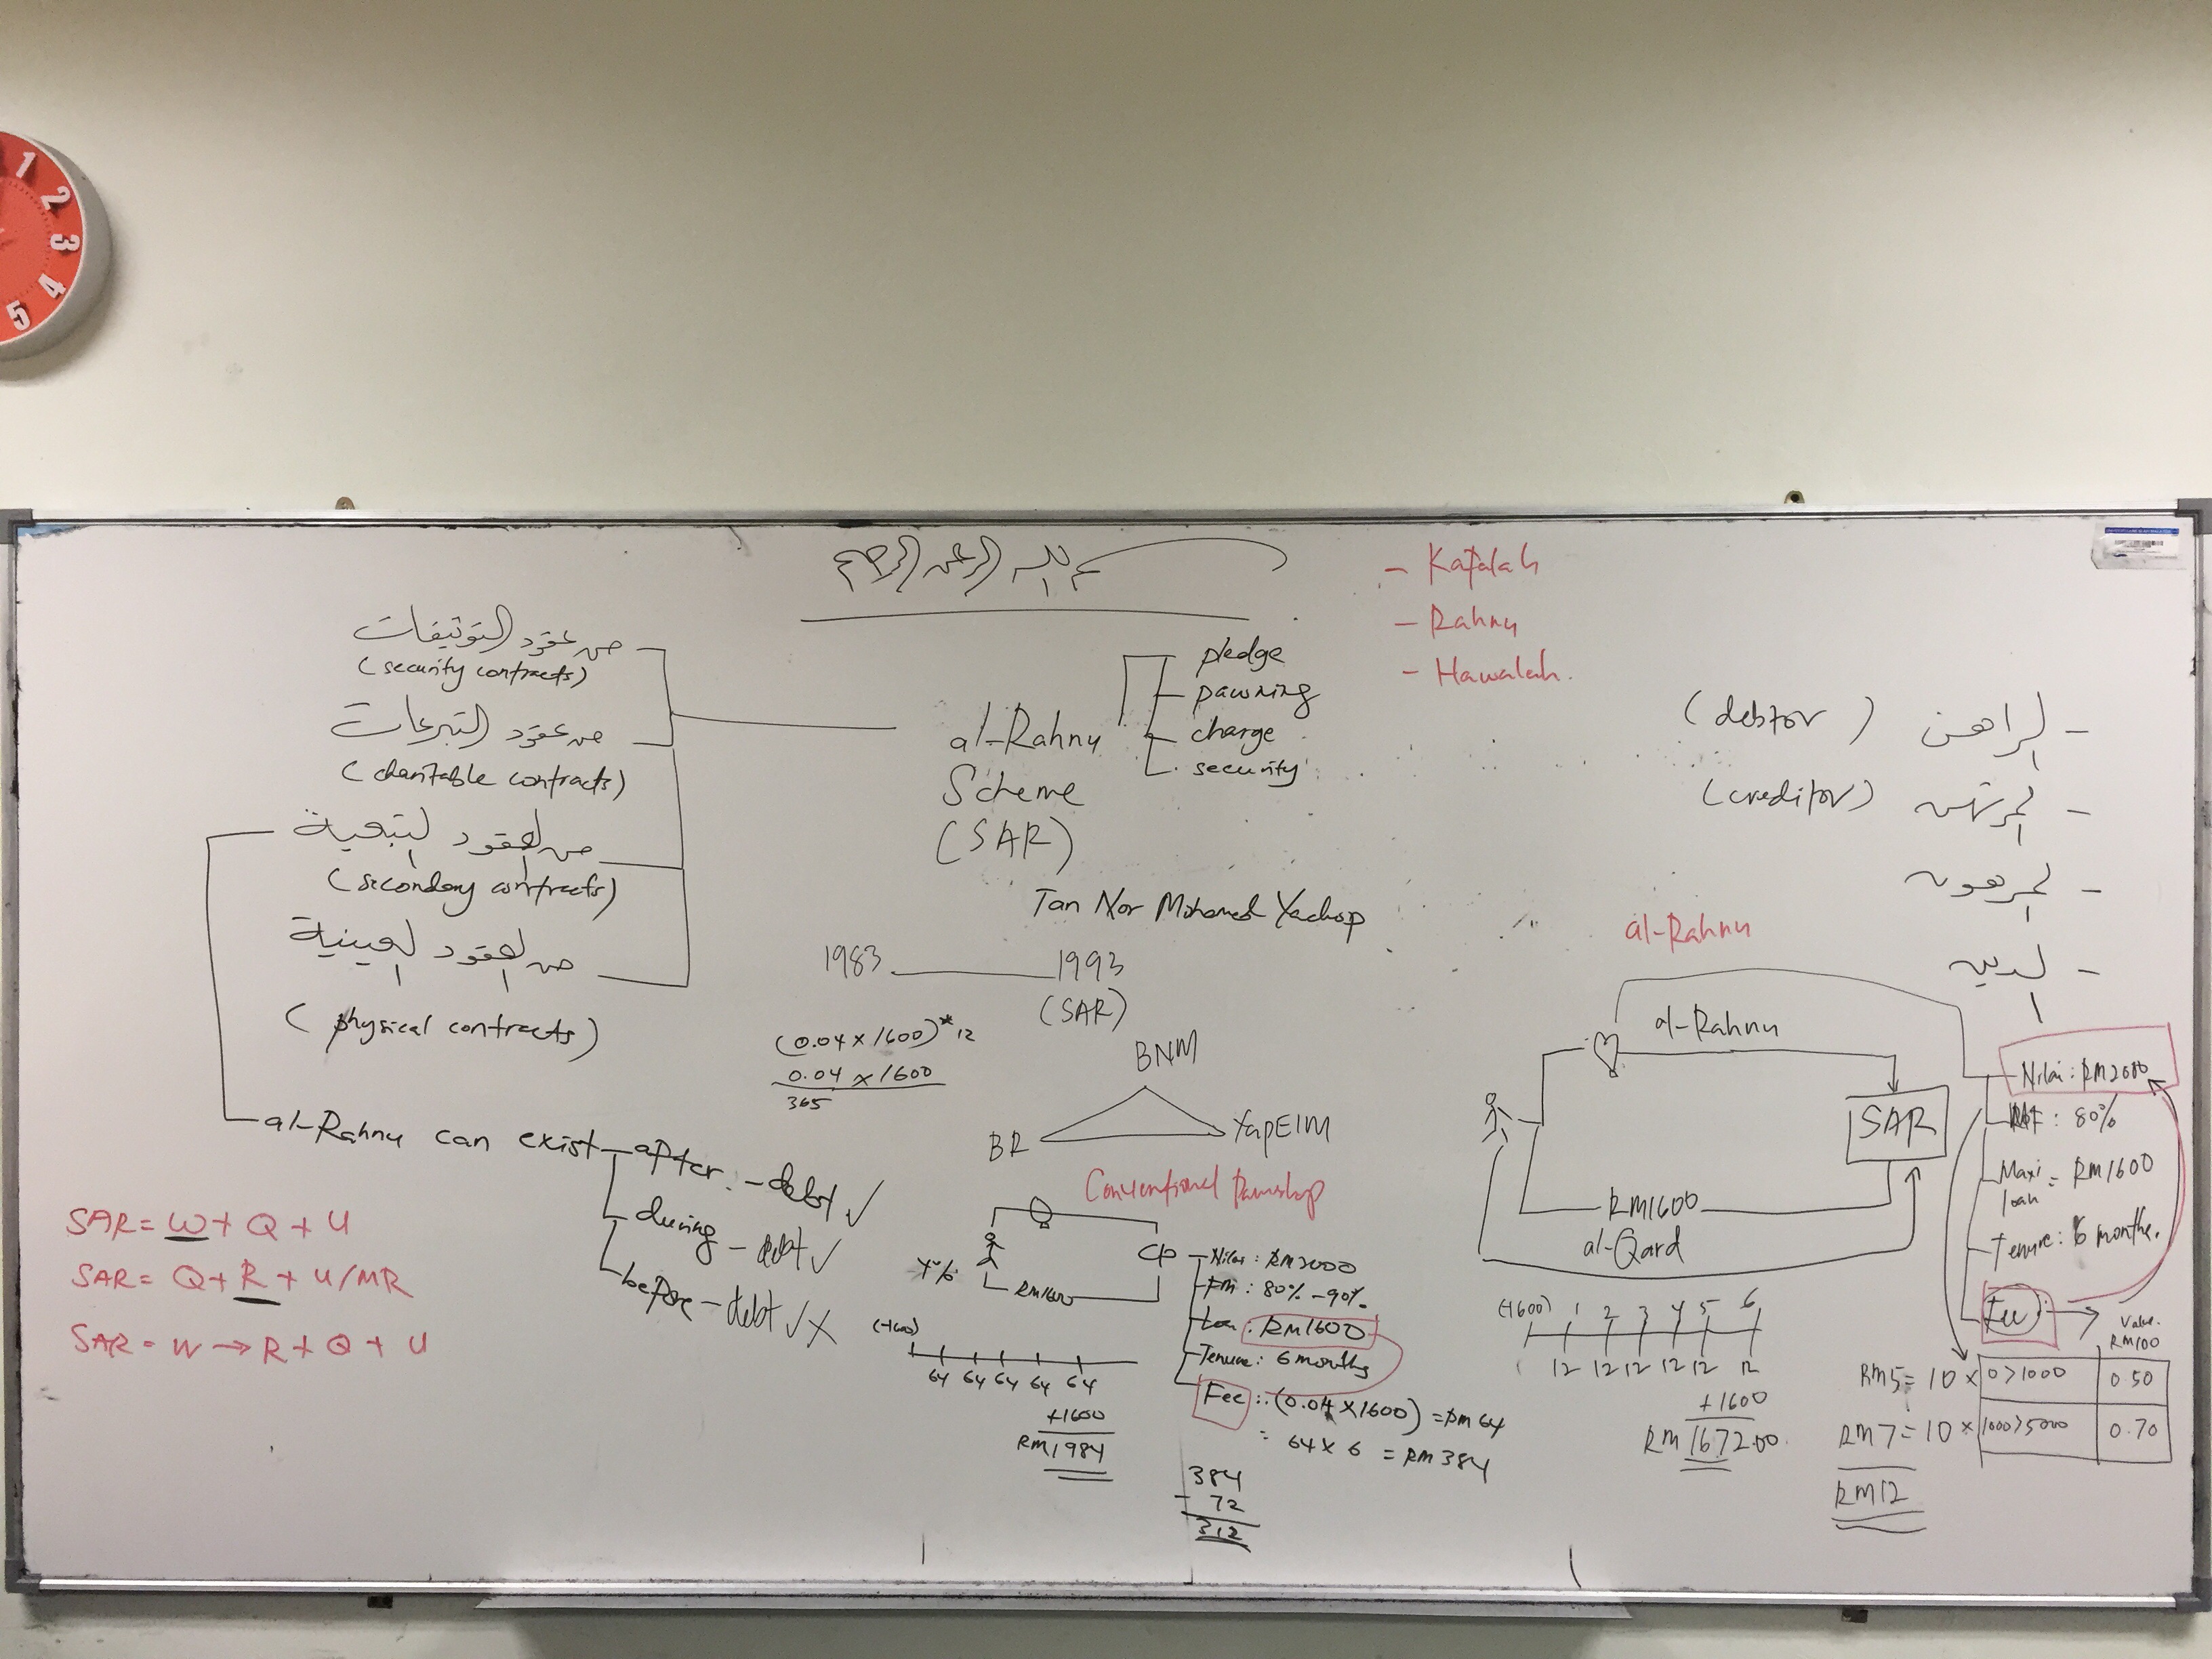 1
2
3
4
5
بسم الله الرحمن الرحيم
- Kafalah
- Rahnu
- Hawalah.
من عقود التوثيقات
(security contracts)
من عقود التبرعات
(charitable contracts)
من العقود التبعية
(secondary contracts)
من العقود العينية
(physical contracts)
al-Rahnu
Scheme
(SAR)
pledge
pawning
charge
security
Tan Nor Mohamed Yackop
1983 1993
(SAR)
(0.04 x 1600) * 12
0.04 x 1600
365
BNM
BR
YaPEIM
al-Rahnu can exist
after - debt ✓
during - debt ✓
before - debt ✓ X
SAR = W + Q + U
SAR = Q + R + U/MR
SAR = W → R + Q + U
Conventional Pawnshop
CP
RM1600
Nilai : RM2000
: 80% - 90%
Loan : RM1600
Tenure : 6 months
Fee : (0.04 x 1600) = RM 64
= 64 x 6 = RM 384
(-1600)
64 64 64 64 64
+1600
RM1984
384
- 72
312
- الراهن (debtor)
- المرتهن (creditor)
- المرهون
- الدين
al-Rahnu
al-Rahnu
SAR
RM1600
al-Qard
Nilai : RM2000
: 80%
Maxi loan = RM1600
Tenure : 6 months.
Fee
(-1600) 1 2 3 4 5 6
12 12 12 12 12 12
+1600
RM 1672.00
Value.
RM100
RM5 = 10 x 0 > 1000 0.50
RM7 = 10 x 1000 > 5000 0.70
RM12